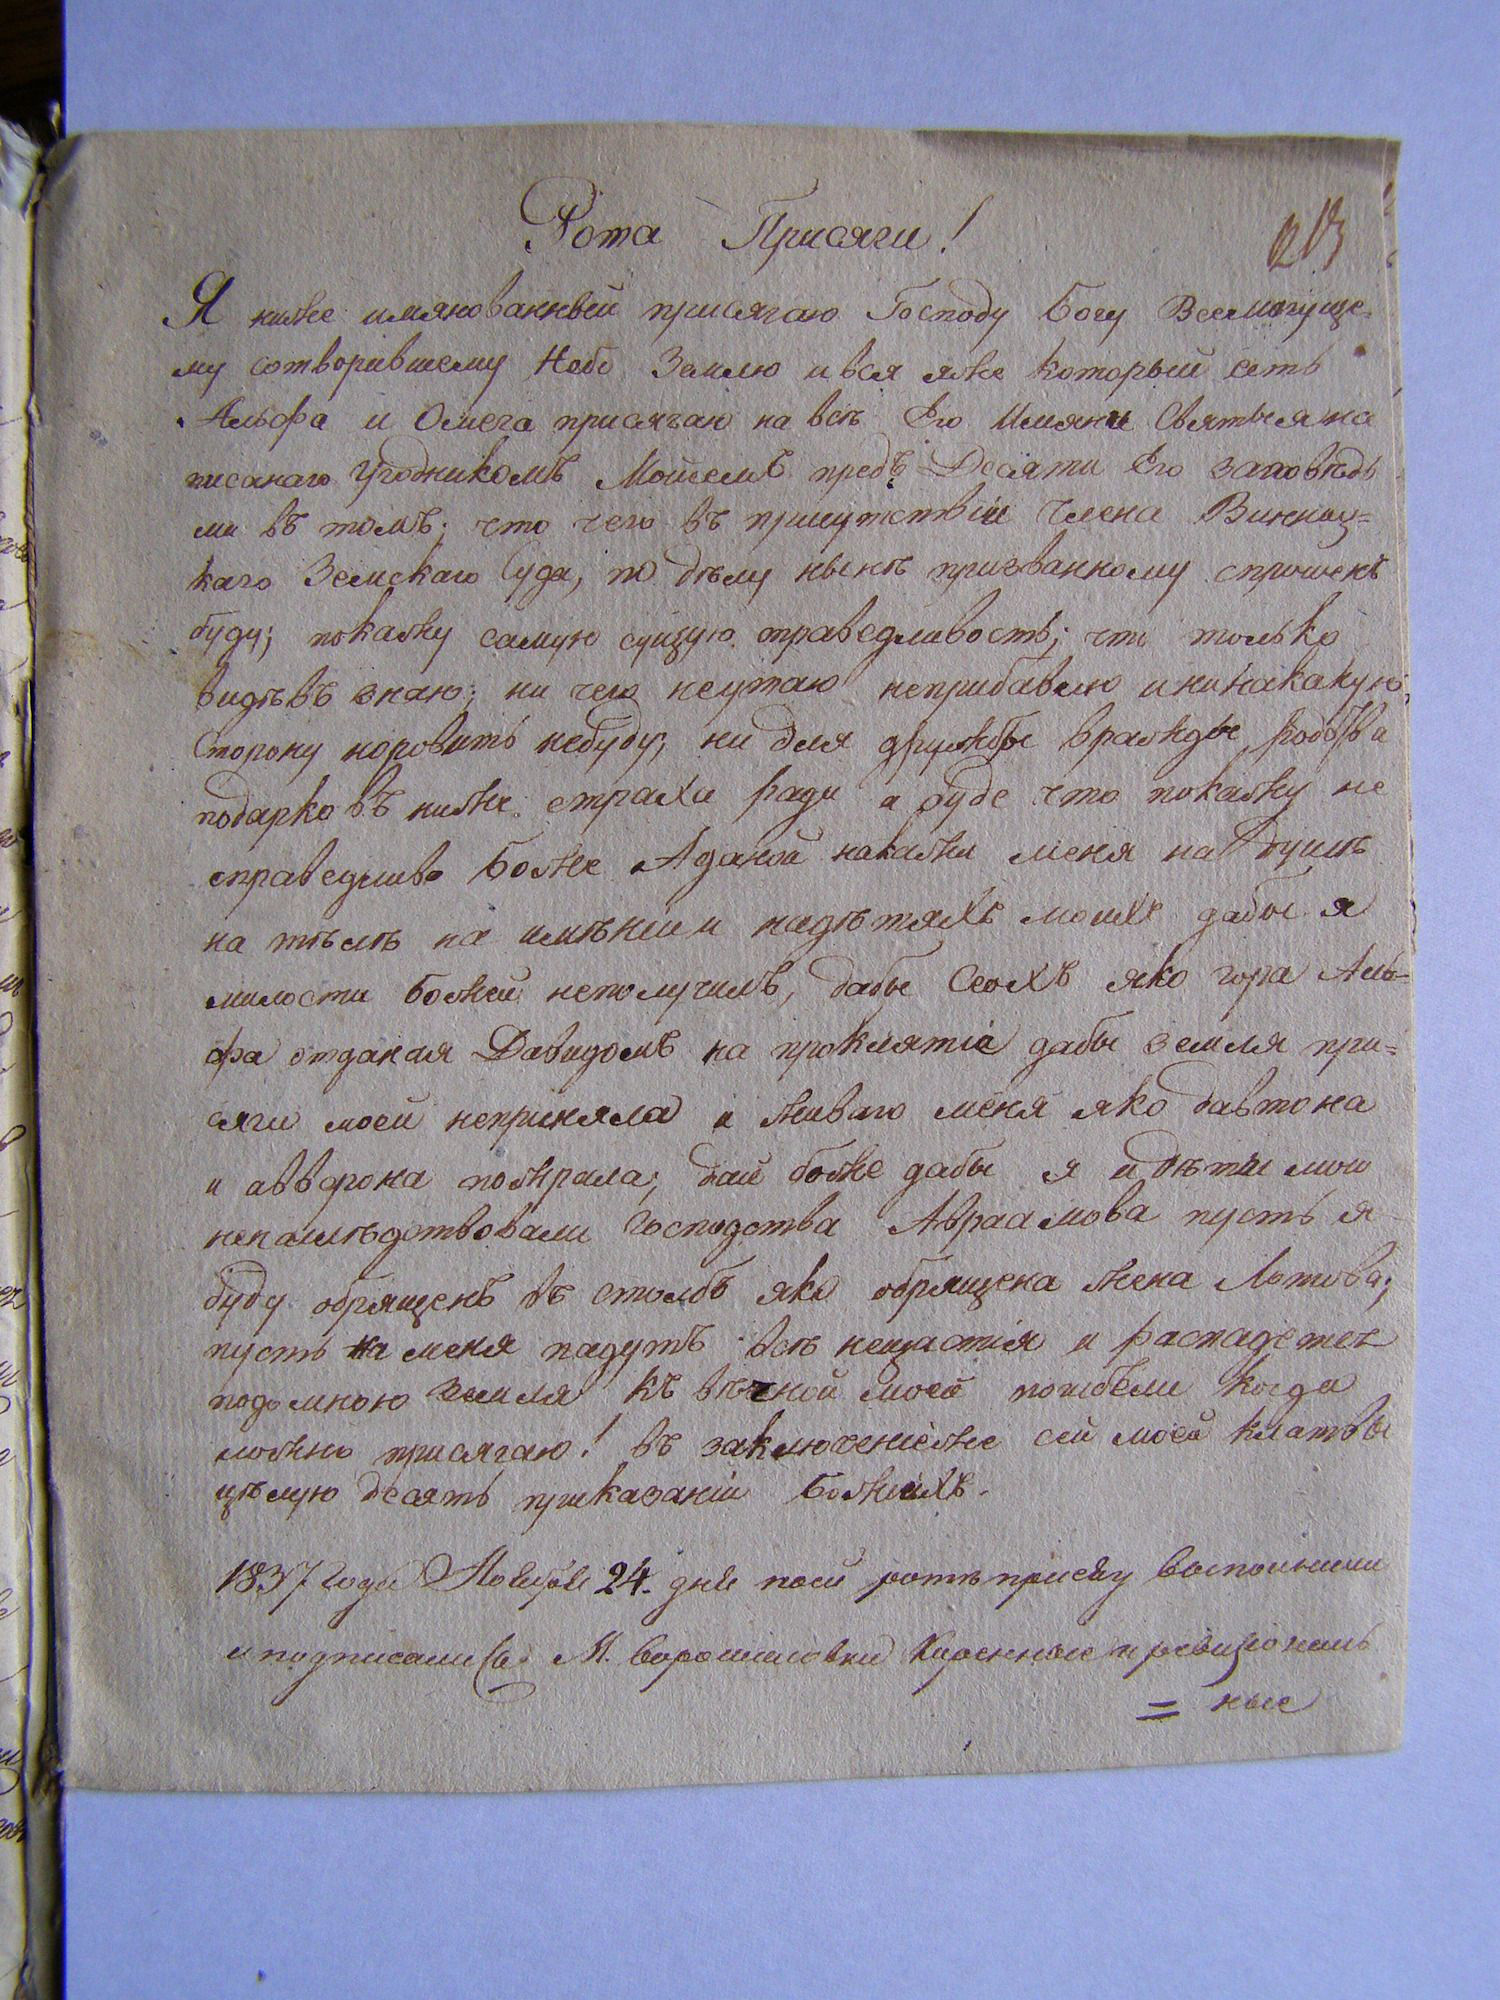 Рота Присяги!
Я ниже имянованный присягаю Господу Богу Всемогуще-
му сотворившему Небо Землю и вся яже который есть
Альфа и Омега присягаю на всѣ Его Имяни Святыя на
писанаго Угодникомъ Мойсемъ предъ Десяти Его заповѣдь
ми въ томъ; что чего въ присутствіи Члена Винниц=
каго Земскаго Суда, по дѣлу нынѣ призванному спрошенъ
буду; покажу самую сущую праведливость; что только
видѣвъ знаю; ни чего неутаю неприбавлю и ни накакую
Сторону норовить небуду; ни для дружбы вражды родства
подарковъ ниже страха ради а буде что покажу не
справедливо Боже Аданой накажи меня на душѣ
на тѣлѣ на имѣніи и надѣтяхъ моихъ дабы я
милости Божей неполучилъ, дабы Сеохъ яко гора Аль-
фа отданая Давидомъ на проклятіе дабы земля при=
сяги моей неприняла и живаго меня яко давтона
и авврона пожирала; дай боже дабы я и дѣти мои
ненаслѣдствовали Господства Авраамова пусть я
буду обрященъ въ столбъ яко обрящена жена Лотова;
пусть на меня падутъ всѣ нещастія и распадетех
подомною земля къ вѣчной моей погибели когда
ложно присягаю! въ заключеніеже сей моей клятвы
цѣлую десять приказаній Божіихъ.
1837 Года Ноября 24. дня посй ротѣ присягу воспольнили
и подписались М. Ворошиловки Жиренные и ревизіоналъ
= ные